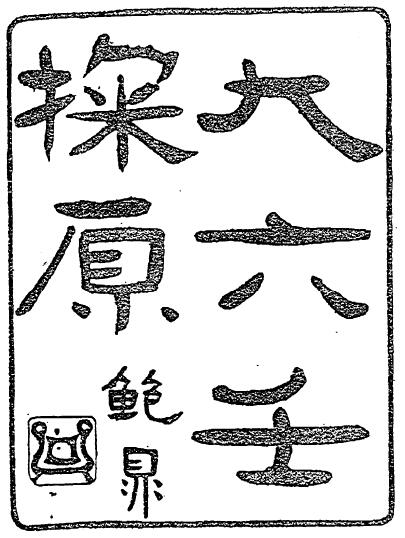 大六壬
探原
鮑鼎